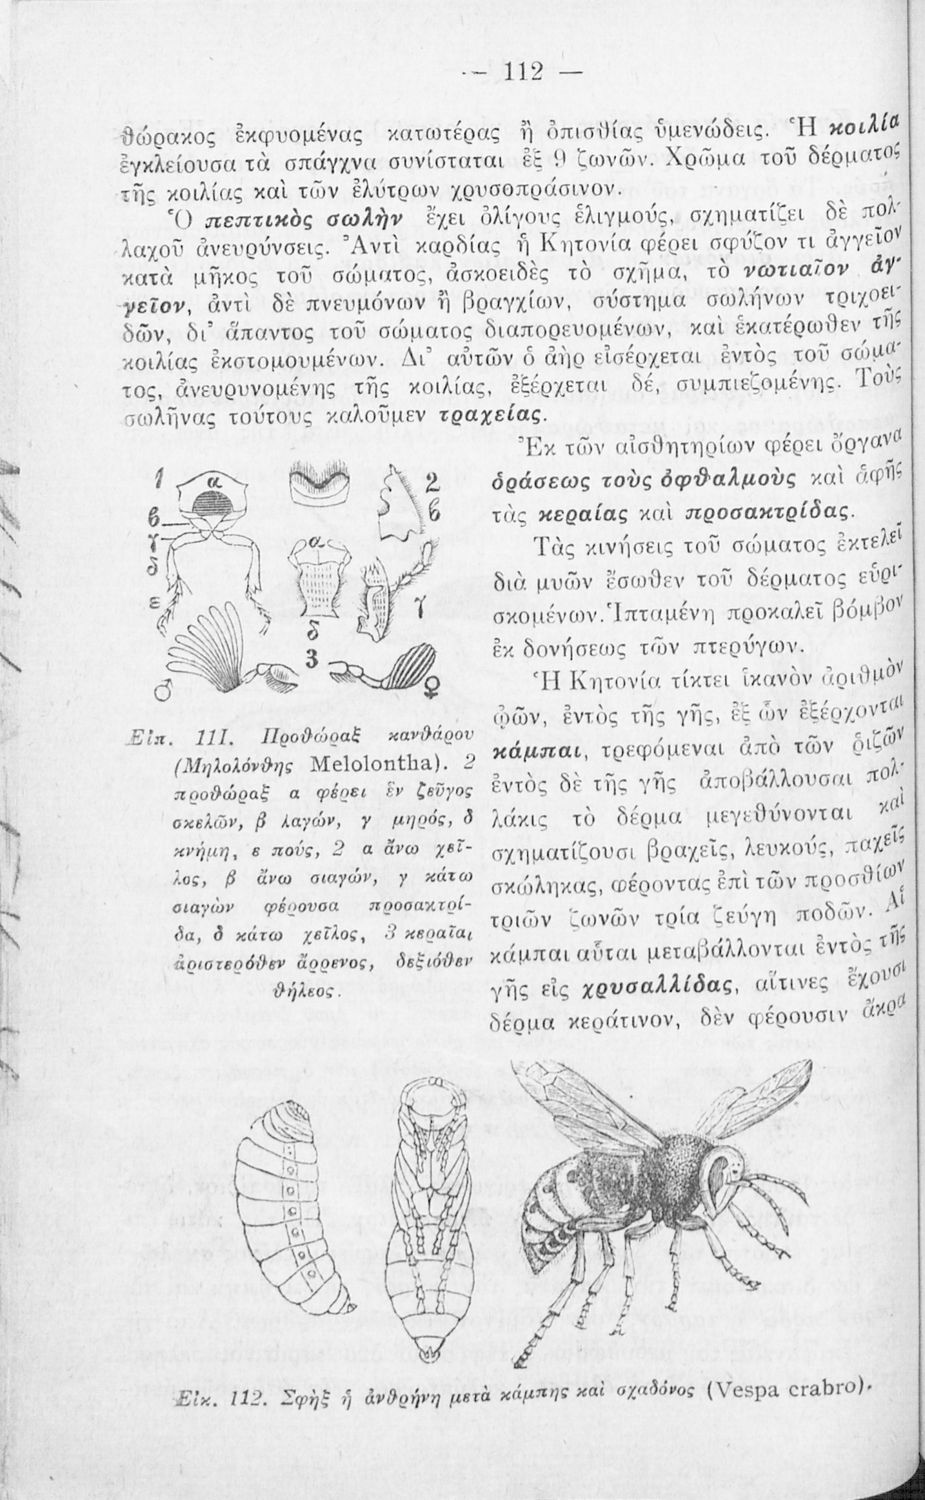 — 112 —
θώρακος ἐκφυομένας κατωτέρας ἢ ὀπισθίας ὑμενώδεις. Ἡ κοιλία
ἐγκλείουσα τὰ σπάγχνα συνίσταται ἐξ 9 ζωνῶν. Χρῶμα τοῦ δέρματος
τῆς κοιλίας καὶ τῶν ἐλύτρων χρυσοπράσινον.
Ὁ πεπτικὸς σωλὴν ἔχει ὀλίγους ἑλιγμούς, σχηματίζει δὲ πολ-
λαχοῦ ἀνευρύνσεις. Ἀντὶ καρδίας ἡ Κητονία φέρει σφύζον τι ἀγγεῖον
κατὰ μῆκος τοῦ σώματος, ἀσκοειδὲς τὸ σχῆμα, τὸ νωτιαῖον ἀγ-
γεῖον, ἀντὶ δὲ πνευμόνων ἢ βραγχίων, σύστημα σωλήνων τριχοει-
δῶν, δι' ἅπαντος τοῦ σώματος διαπορευομένων, καὶ ἑκατέρωθεν τῆς
κοιλίας ἐκστομουμένων. Δι' αὐτῶν ὁ ἀὴρ εἰσέρχεται ἐντὸς τοῦ σώμα-
τος, ἀνευρυνομένης τῆς κοιλίας, ἐξέρχεται δέ, συμπιεζομένης. Τοὺς
σωλῆνας τούτους καλοῦμεν τραχείας.
Ἐκ τῶν αἰσθητηρίων φέρει ὄργανα
ὁράσεως τοὺς ὀφθαλμοὺς καὶ ἁφῆς
τὰς κεραίας καὶ προσακτρίδας.
Τὰς κινήσεις τοῦ σώματος ἐκτελεῖ
διὰ μυῶν ἔσωθεν τοῦ δέρματος εὑρι-
σκομένων. Ἱπταμένη προκαλεῖ βόμβον
ἐκ δονήσεως τῶν πτερύγων.
Ἡ Κητονία τίκτει ἱκανὸν ἀριθμὸν
ᾠῶν, ἐντὸς τῆς γῆς, ἐξ ὧν ἐξέρχονται
κάμπαι, τρεφόμεναι ἀπὸ τῶν ῥιζῶν
ἐντὸς δὲ τῆς γῆς ἀποβάλλουσαι πολ-
λάκις τὸ δέρμα μεγεθύνονται καὶ
σχηματίζουσι βραχεῖς, λευκούς, παχεῖς
σκώληκας, φέροντας ἐπὶ τῶν προσθίων
τριῶν ζωνῶν τρία ζεύγη ποδῶν. Αἱ
κάμπαι αὗται μεταβάλλονται ἐντὸς τῆς
γῆς εἰς χρυσαλλίδας, αἵτινες ἔχουσι
δέρμα κεράτινον, δὲν φέρουσιν ἄκρα
1 α β γ δ ε
2 β
α γ δ
3
♂ ♀
Εἰπ. 111. Προθώραξ κανθάρου
(Μηλολόνθης Melolontha). 2
προθώραξ α φέρει ἓν ζεῦγος
σκελῶν, β λαγών, γ μηρός, δ
κνήμη, ε πούς, 2 α ἄνω χεῖ-
λος, β ἄνω σιαγών, γ κάτω
σιαγὼν φέρουσα προσακτρί-
δα, δ κάτω χεῖλος, 3 κεραῖαι
ἀριστερόθεν ἄρρενος, δεξιόθεν
θήλεος.
Εἰκ. 112. Σφὴξ ἡ ἀνθρήνη μετὰ κάμπης καὶ σχαδόνος (Vespa crabro).